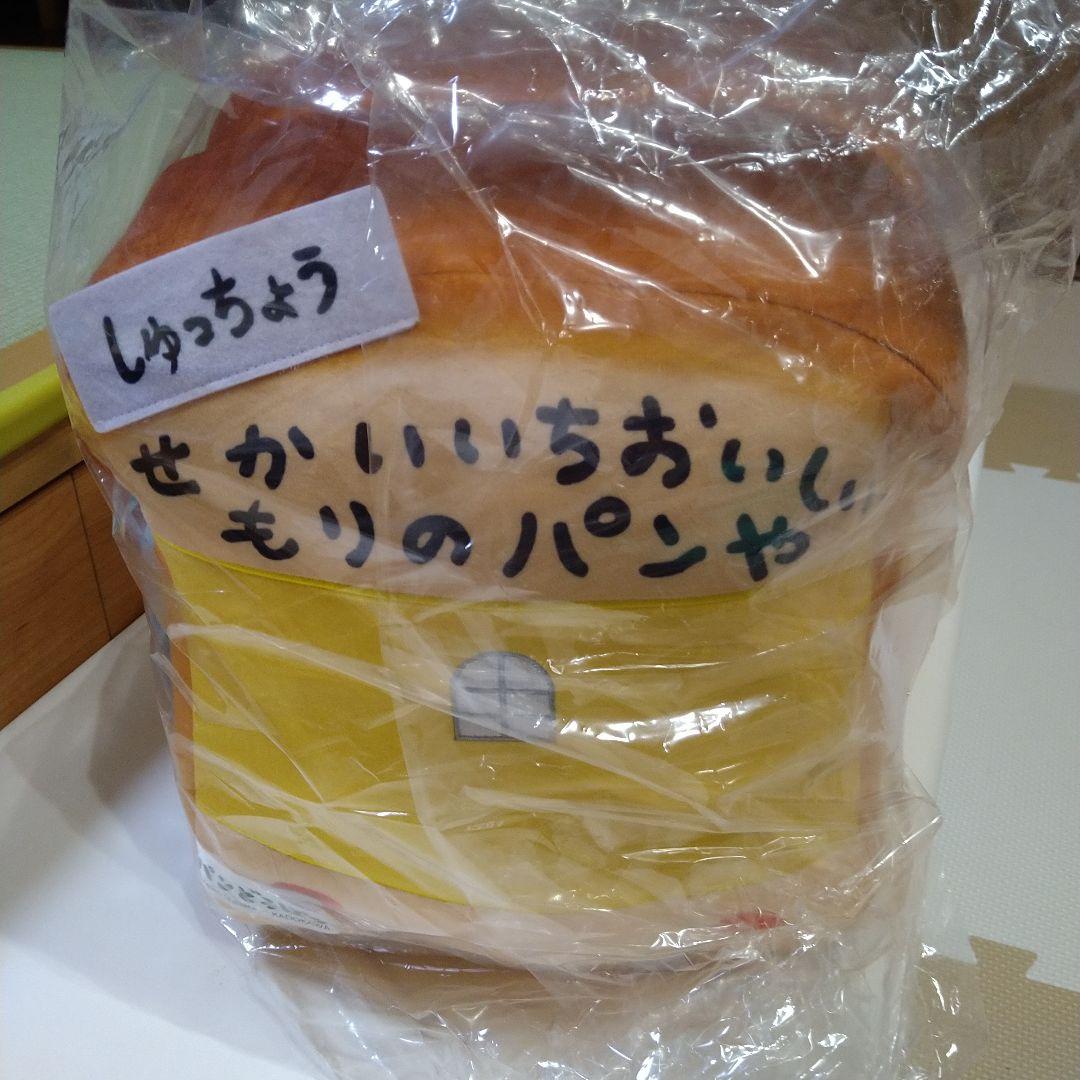 しゅっちょう
せかいいちおいしい
もりのパンや
KADOKAWA